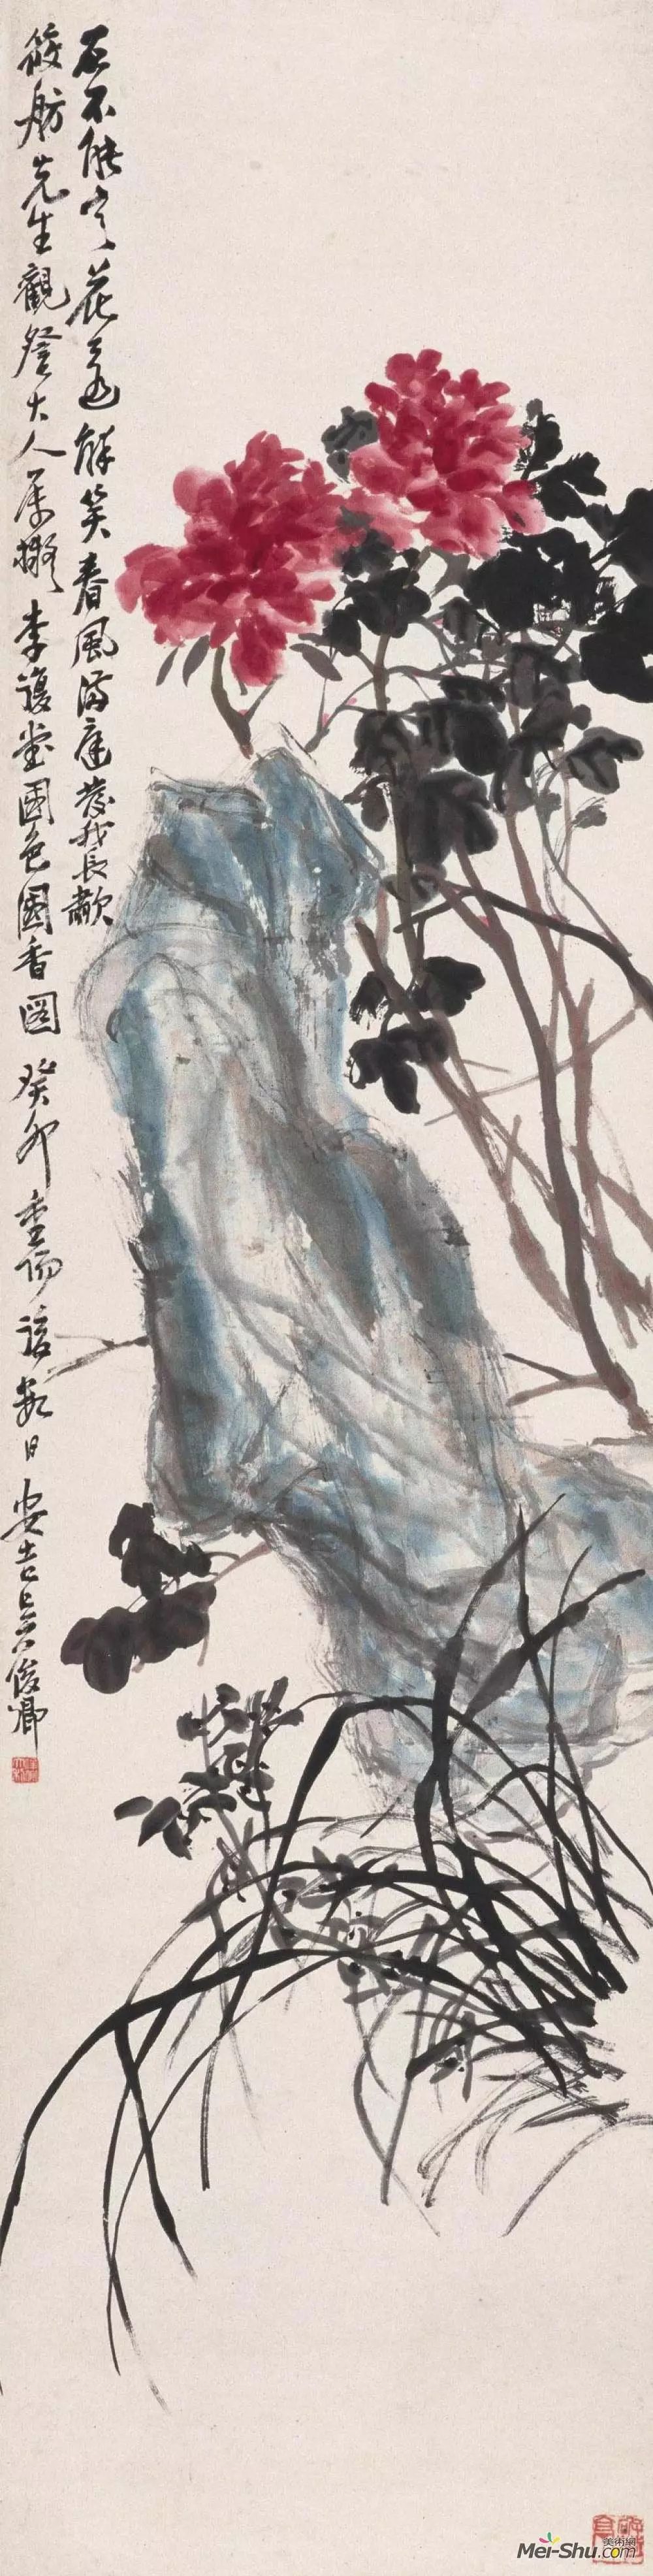 石不能言花遂解笑春風滿庭發我長歗
筱舫先生觀詧大人屬擬李復堂國色國香圖癸卯重陽後數日安吉吳俊卿
美術網
Mei-Shu.com